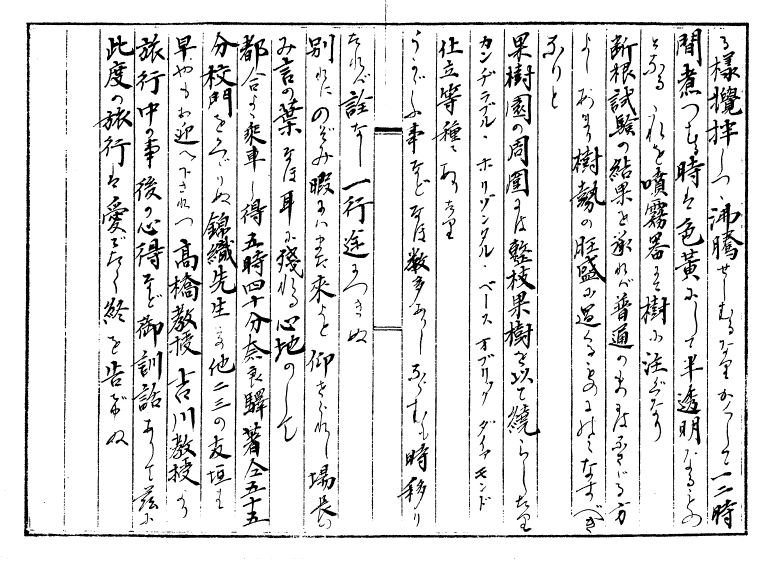 る様攪拌しつゝ沸騰せしむるなり かくして一二時
間煮つむる時は色黄にして半透明なるもの
となる これを噴霧器にて樹に注ぐなり
断根試験の結果を承れば普通のまゝはよき方
よし あまり樹勢の旺盛に過ぐるものにのみなすべき
なりと
果樹園の周囲には整枝果樹を以て繞らしたり
カンデラブル・ホリゾンタル・ベース オブリック ダイヤモンド
仕立等種々ありたり
うかゞふ事などなほ数多あり しかも時移り
たれば詮なし 一行途につきぬ
別れにのぞみ暇には又来よと仰せられし場長の
み言の葉なほ耳に残れる心地のして
都合よく乗車し得 五時四十分奈良驛着 仝五十五
分校門をくゞりぬ 錦織先生
早やもお迎へ下されつ 高橋教授 吉川教授より
旅行中の事後の心得など御訓話ありて茲に
此度の旅行は愛でたく終を告げぬ